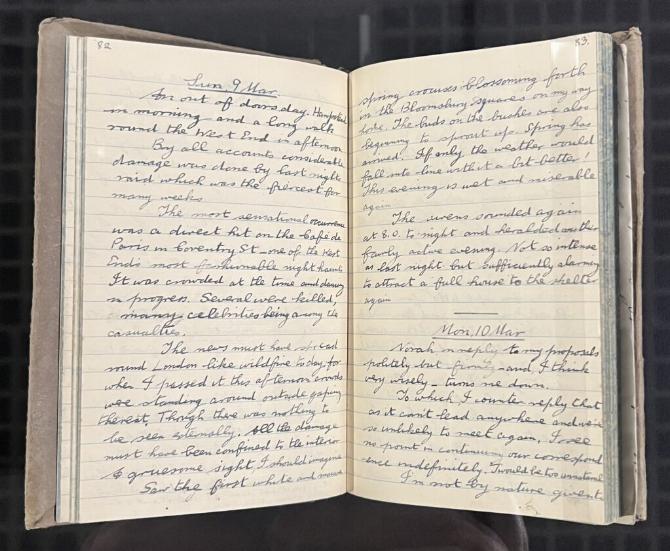 82
Sun. 9 Mar.
An out of doors day. Hampstead
in morning and a long walk
round the West End in afternoon
By all accounts considerable
damage was done by last nights
raid which was the fiercest for
many weeks
The most sensational occurrence
was a direct hit on the Café de
Paris in Coventry St – one of the West
End's most fashionable night haunts
It was crowded at the time and dancing
in progress. Several were killed,
many celebrities being among the
casualties.
The news must have spread
round London like wildfire to day, for
when I passed it this afternoon crowds
were standing around outside gaping
thereat, Though there was nothing to
be seen externally. All the damage
must have been confined to the interior
A gruesome sight, I should imagine
Saw the first white and mauve
83.
spring crocuses blossoming forth
in the Bloomsbury squares on my way
here. The buds on the bushes are also
beginning to sprout up. Spring has
arrived. If only the weather would
fall into line with it a bit better!
This evening is wet and miserable
again
The sirens sounded again
at 8.0. to night and heralded another
fairly active evening. Not so intense
as last night but sufficiently alarming
to attract a full house to the shelter
again
Mon. 10 Mar
Norah in reply to my proposals
politely but firmly – and, I think
very wisely – turns me down.
To which I counter reply that
as it can't lead anywhere and we're
so unlikely to meet again, I see
no point in continuing our correspond
ence indefinitely. Twould be too unnatural
I'm not by nature